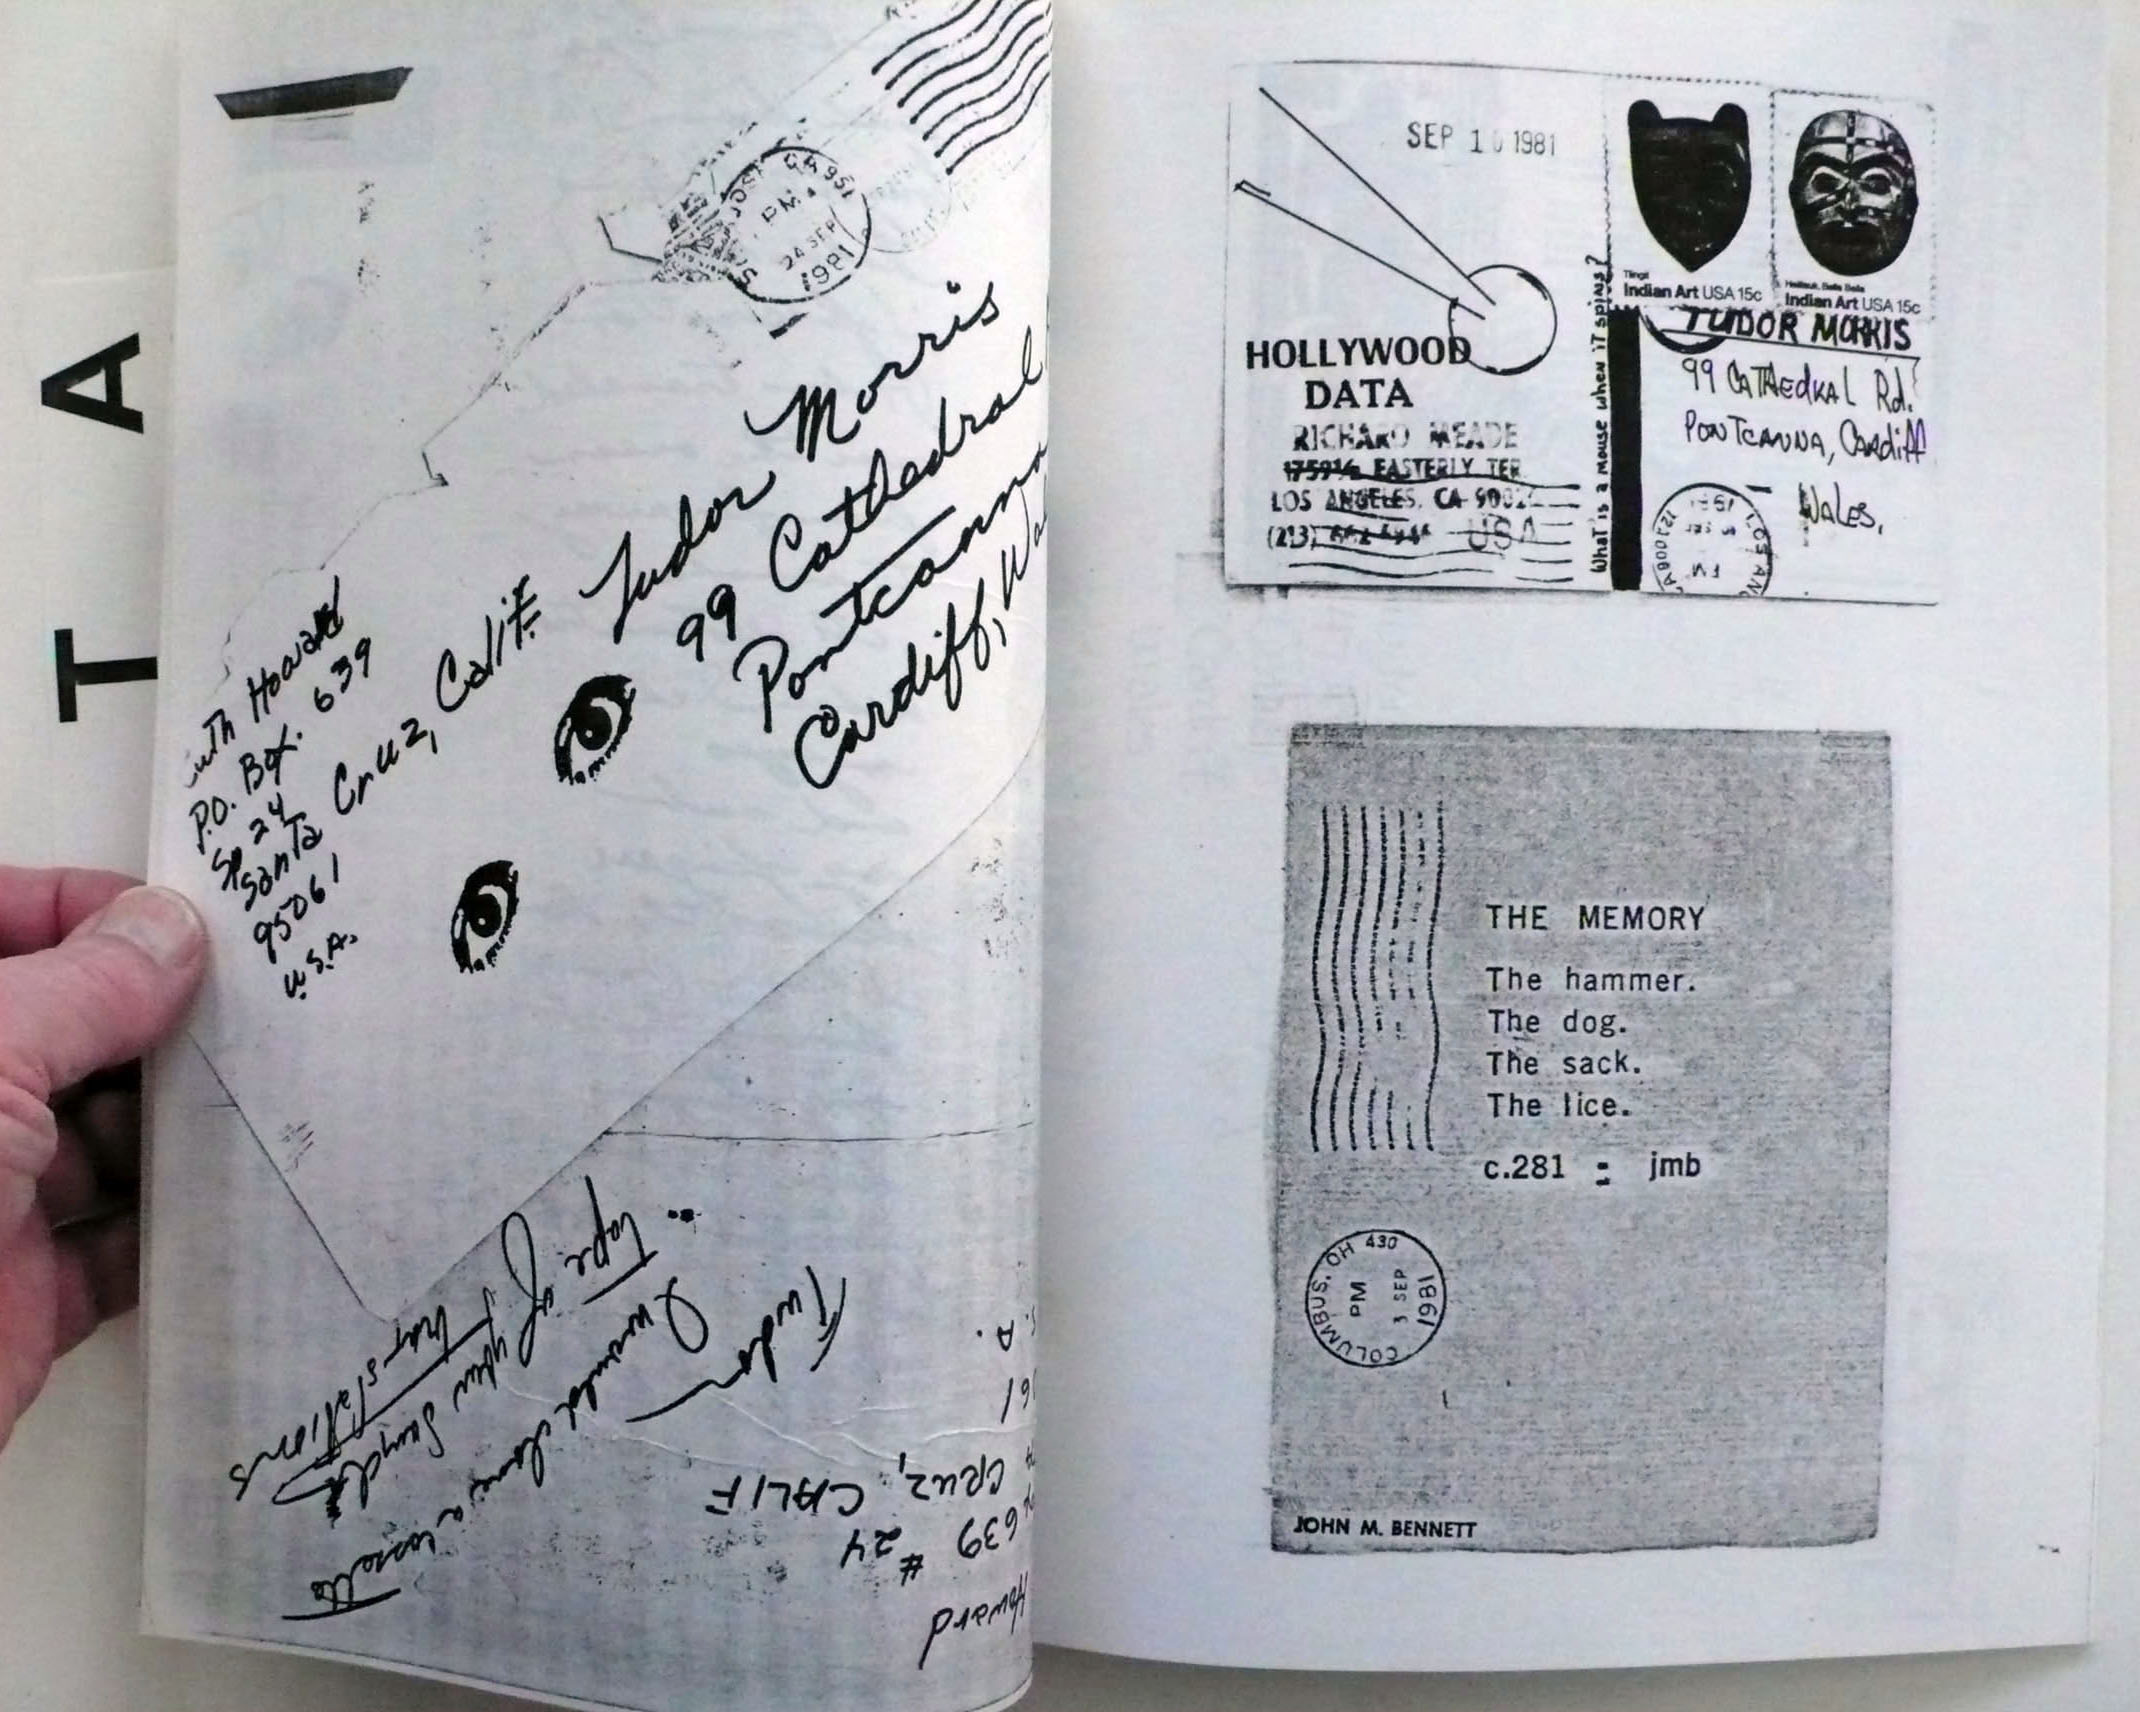 T A
SAN JOSE CA 951
PM
24 SEP
1981
Tudor Morris
99 Cathedral
Pontcanna
Cardiff,
Howard
P.O. Box. 639
Sp 24
Santa Cruz, Calif.
95061
U.S.A.
Tudor
I would love a cassette
tape of your Sounds
translations
Howard
639 #24
CRUZ, CALIF
61
S. A.
SEP 10 1981
Tlingit
Indian Art USA 15c
Heiltsuk, Bella Bella
Indian Art USA 15c
HOLLYWOOD
DATA
RICHARD MEADE
1759½ EASTERLY TER
LOS ANGELES, CA 90026
(213)
USA
What is a mouse when it spins?
TUDOR MORRIS
99 CATHEDRAL Rd.
PONTCANNA, Cardiff
WALES,
LOS ANG
PM
1981
THE MEMORY
The hammer.
The dog.
The sack.
The lice.
c.281 : jmb
COLUMBUS, OH 430
PM
3 SEP
1981
JOHN M. BENNETT